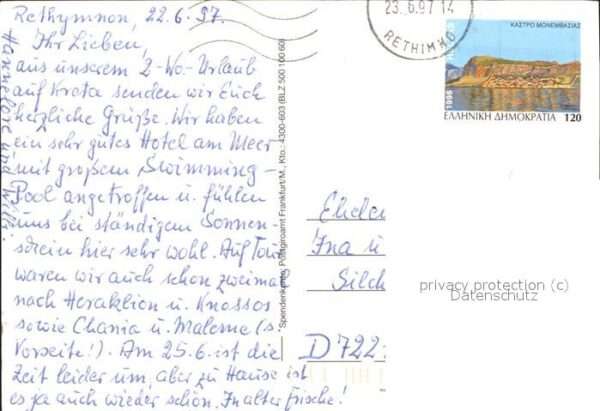 Rethymnon, 22.6.97.
Ihr Lieben,
aus unserem 2-Wo.-Urlaub
auf Kreta senden wir Euch
herzliche Grüße. Wir haben
ein sehr gutes Hotel am Meer
mit großem Swimming-
Pool angetroffen u. fühlen
uns bei ständigem Sonnen-
schein hier sehr wohl. Auf Tour
waren wir auch schon zweimal
nach Heraklion u. Knossos
sowie Chania u. Maleme (s.
Vorseite!). Am 25.6. ist die
Zeit leider um, aber zu Hause ist
es ja auch wieder schön. In alter Frische!
Hannelore und Willi
Spendenkonto, Postgiroamt Frankfurt/M., Kto.: 4300-603 (BLZ 500 100 60)
23.6.97 14
RETHIMNO
ΚΑΣΤΡΟ ΜΟΝΕΜΒΑΣΙΑΣ
1996
ΕΛΛΗΝΙΚΗ ΔΗΜΟΚΡΑΤΙΑ 120
Ina u
D 722
privacy protection (c)
Datenschutz